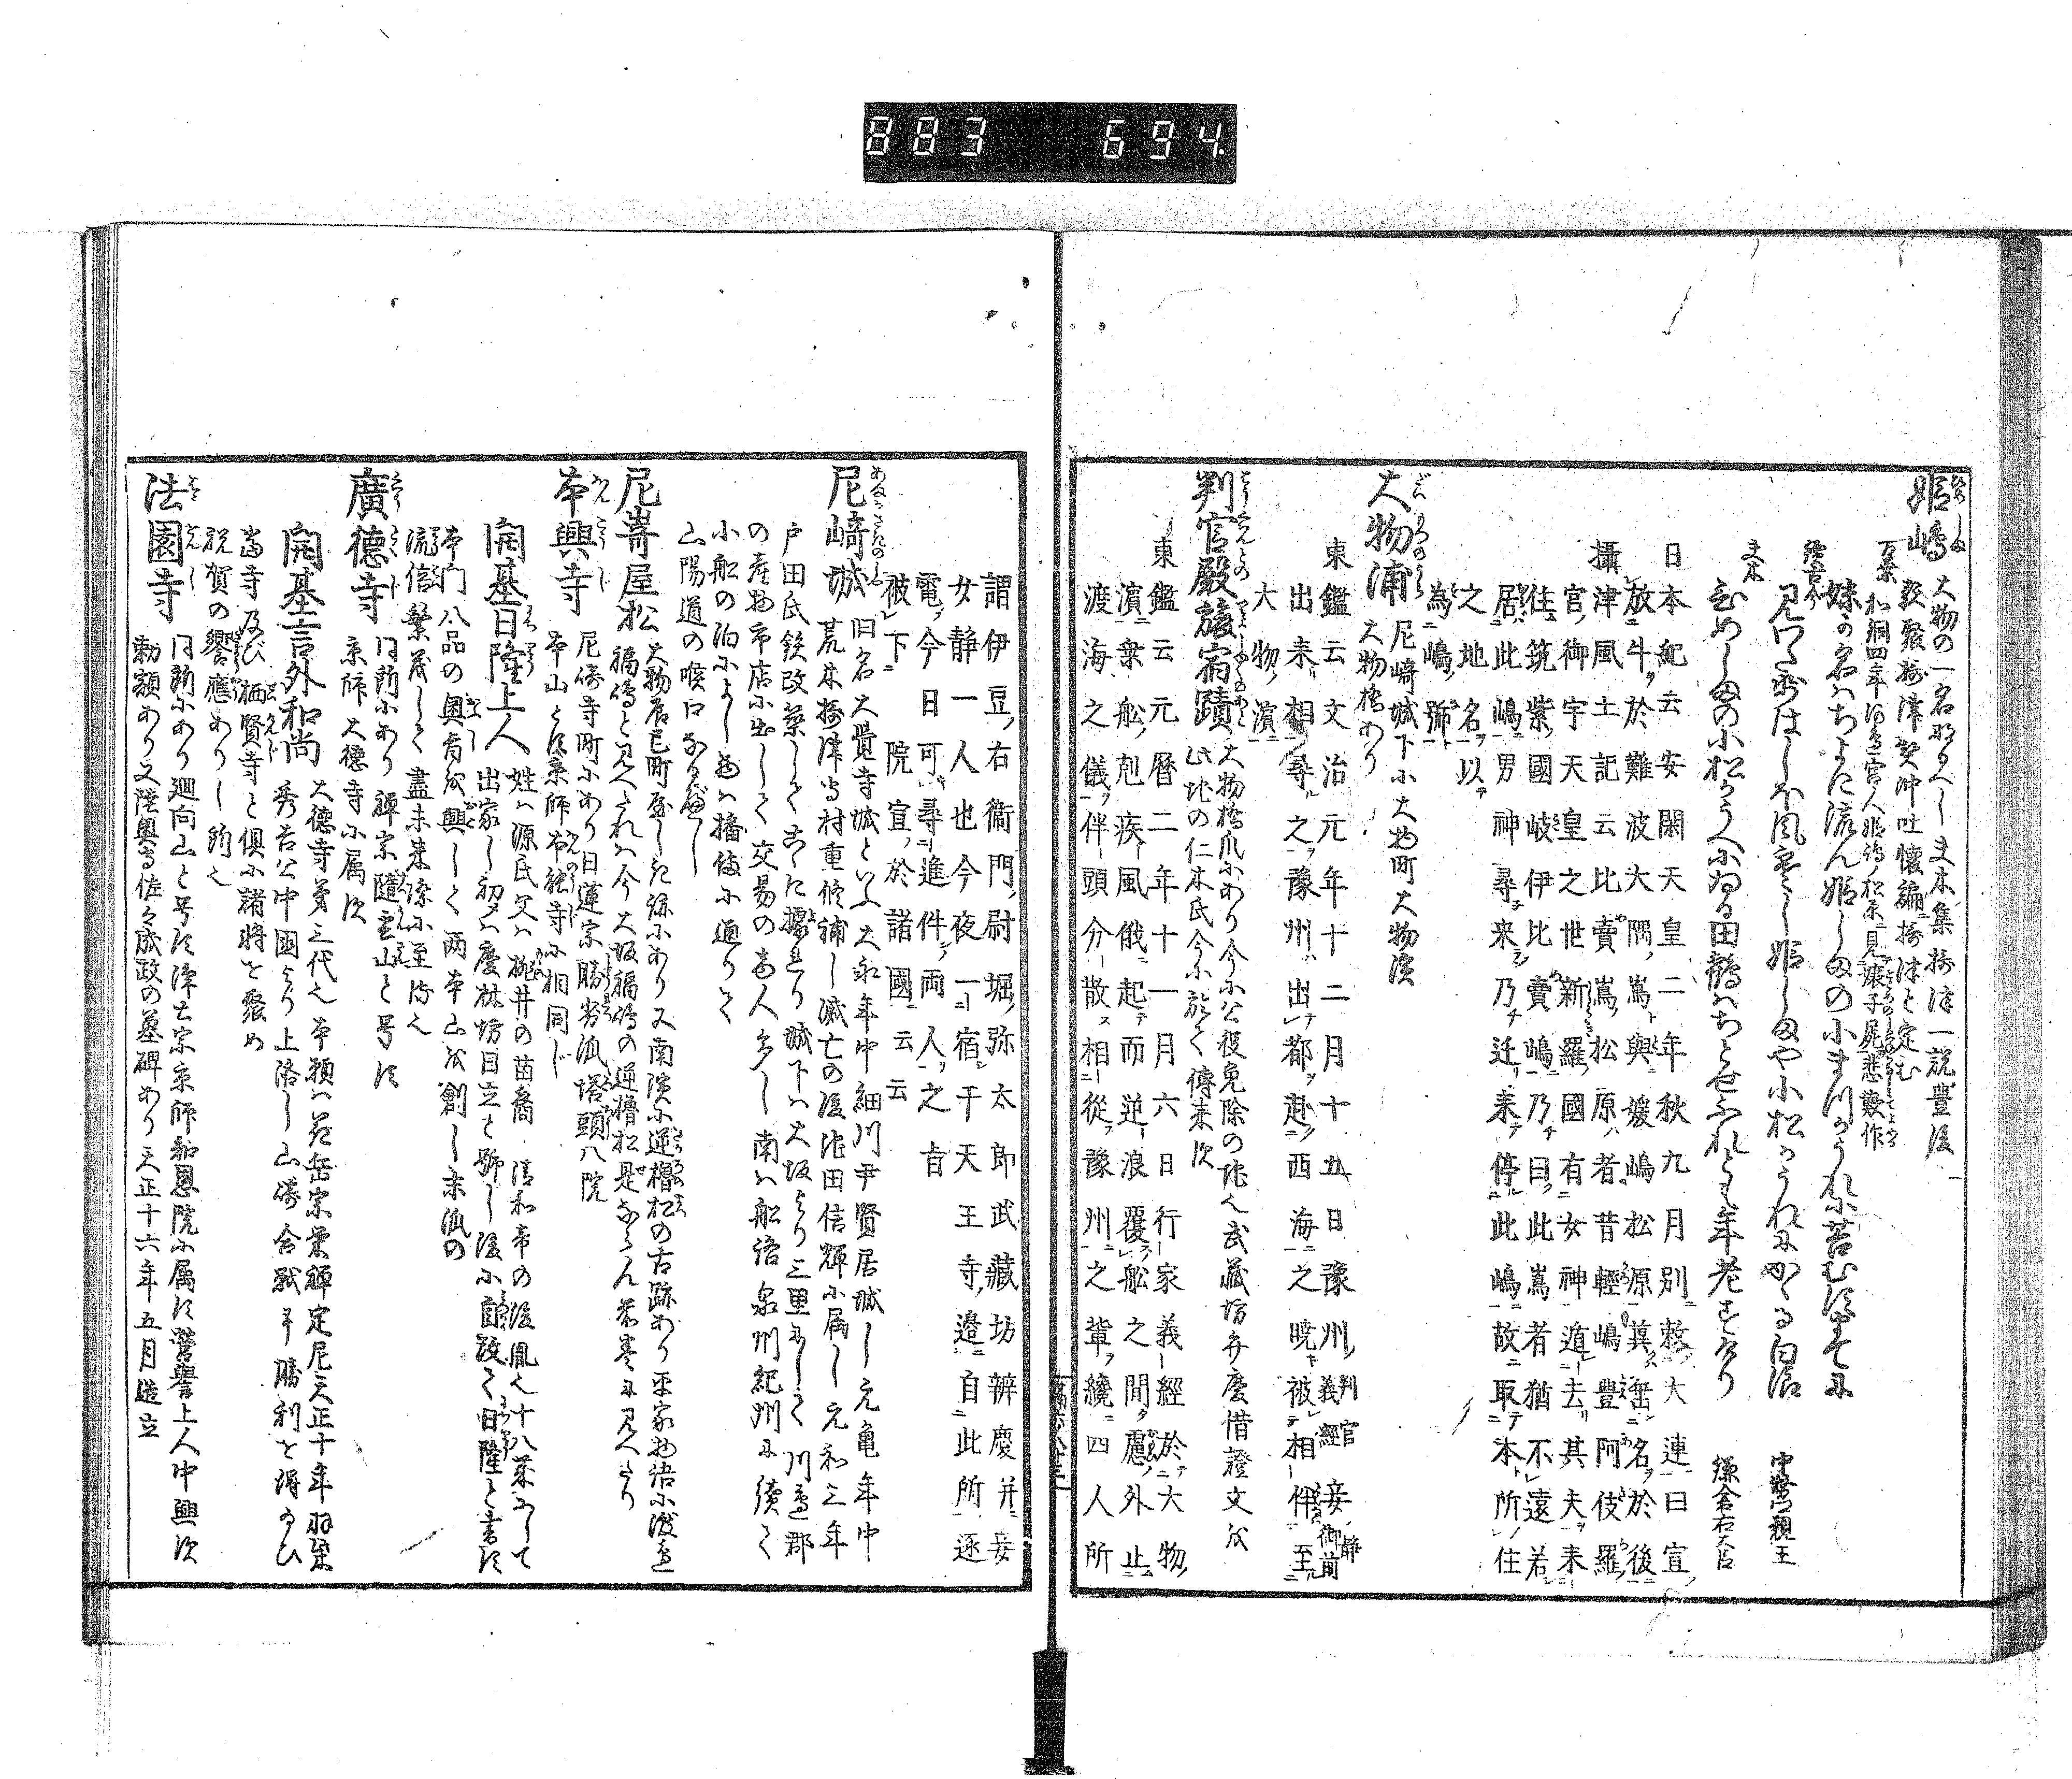 883 694
姫嶋 大物の一名なるべし夫木集摂津一説豊後
或発摂津契沖吐懐編ニ摂津と定む
万葉 和銅四年河辺宮人姫嶋ノ松原ニ見嬢子屍悲歎作
妹か名はちよに流れん姫しまの小まつかうれに苔むすまてに
続古今 見わたせはしほ風寒し姫しまや小松かうれにかゝる白浪 中務親王
夫木 ひめしまの小松かうへにゐる田鶴はちとせふれとも年老すけり 鎌倉右大臣
日本紀云安閑天皇二年秋九月別敕大連曰宣
放牛於難波大隅嶌與媛嶋松原冀垂名於後
攝津風土記云比賣嶌松原者昔輕嶋豊阿伎羅
宮御宇天皇之世新羅國有女神遁去其夫来
住筑紫國岐伊比賣嶋乃曰此嶌者猶不遠若
居此嶋男神尋来乃迁来停此嶋故取本所住
之地名以
為嶋號
大物浦 尼崎城下に大物町大物濱
大物橋あり
東鑑云文治元年十二月十五日豫州判官義經妾静御前
出来相尋之豫州出都赴西海之暁被相伴至
大物濱
判官殿旅宿蹟 大物橋爪にあり今に公役免除の地也武蔵坊弁慶借證文を
此地の仁木氏今に於て傳来す
東鑑云元暦二年十一月六日行家義經於大物
濱乗舩剋疾風俄起而逆浪覆舩之間慮外止
渡海之儀伴頭分散相従豫州之輩纔四人所
謂伊豆右衞門尉堀弥太郎武藏坊辨慶并妾
女静一人也今夜一宿于天王寺邉自此所逐
電今日可尋進件両人之旨
被下院宣於諸國云云
尼崎城 旧名大覺寺城といふ大永年中細川尹賢居城し元亀年中
荒木摂津守村重修補し滅亡の後池田信輝に属し元和三年
戸田氏銕改築してこゝに據れり城下は大坂より三里にして川邉郡
の産物市店に出して交易の商人多し南は舩路泉州紀州に續て
小舩の泊によし西は播備に通りて
山陽道の喉口なるべし
尼崎屋松 大物居已町屋しき跡にあり又南濱に逆櫓松の古跡あり平家物語に渡邉
福嶋と見へたれは今大坂福嶋の逆櫓松是ならん
本興寺 尼崎寺町にあり日蓮宗勝劣派塔頭八院
本山とす京師本能寺に相同じ
開基日隆上人 姓は源氏父は桃井の苗裔 清和帝の後胤也十八歳にして
出家し初めは慶林坊日立と號し後に自改て日隆と書す
本門八品の奥旨を興して両本山を創し末派の
流信繁茂して盡未来際に至る也
廣徳寺 同所にあり禅宗隨雲山と号す
京師大徳寺に属す
開基言外和尚 大徳寺第三代也本願は花岳宗栄禅定尼天正十年羽柴
秀吉公中國より上洛し山崎合戦に勝利を得給ひ
當寺及び栖賢寺と倶に諸将を聚め
祝賀の饗應ありし所也
法園寺 同所にあり廻向山と号す浄土宗京師知恩院に属す誉上人中興す
勅額あり又陸奥守佐々成政の墓碑あり天正十六年五月造立